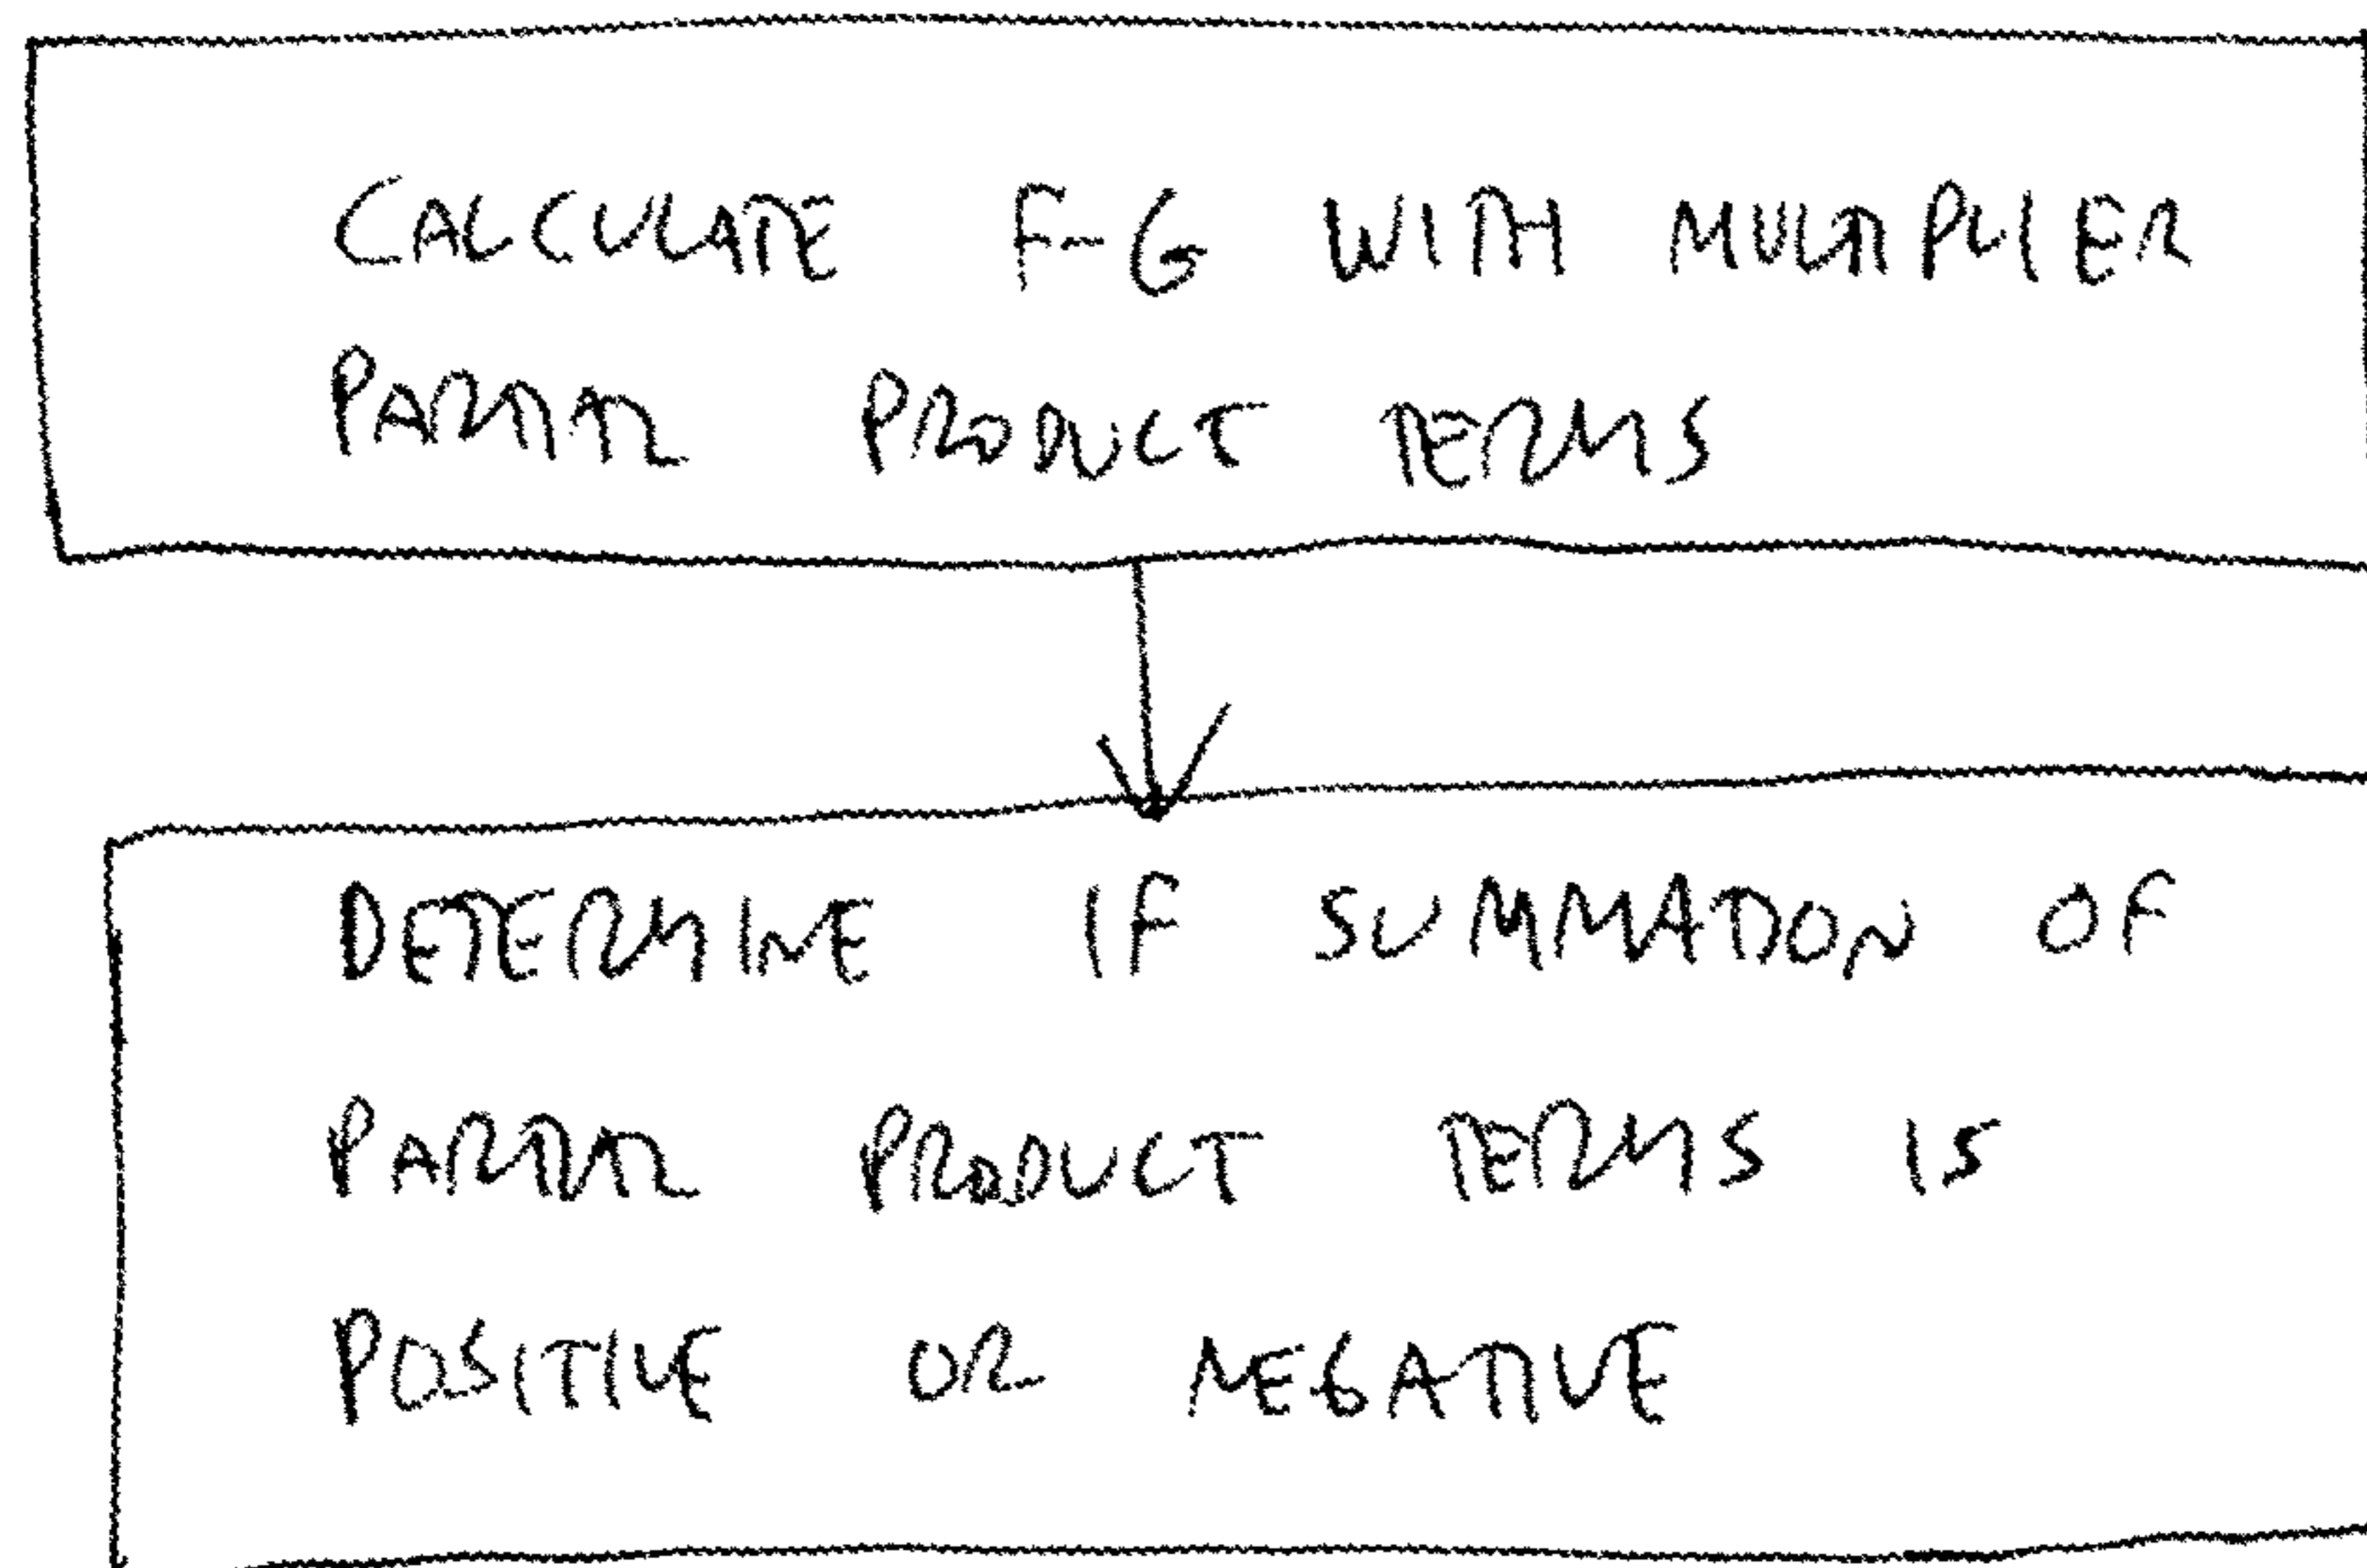 CALCULATE F-G WITH MULTIPLIER
PARTIAL PRODUCT TERMS
DETERMINE IF SUMMATION OF
PARTIAL PRODUCT TERMS IS
POSITIVE OR NEGATIVE